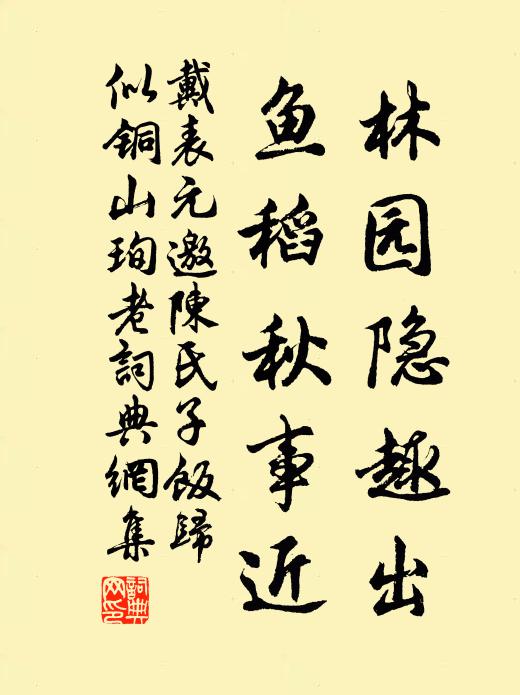 林园隐趣出
鱼稻秋事近
戴表元邀陳氏子飯歸
似铜山珣老詞典網集
詞典网印